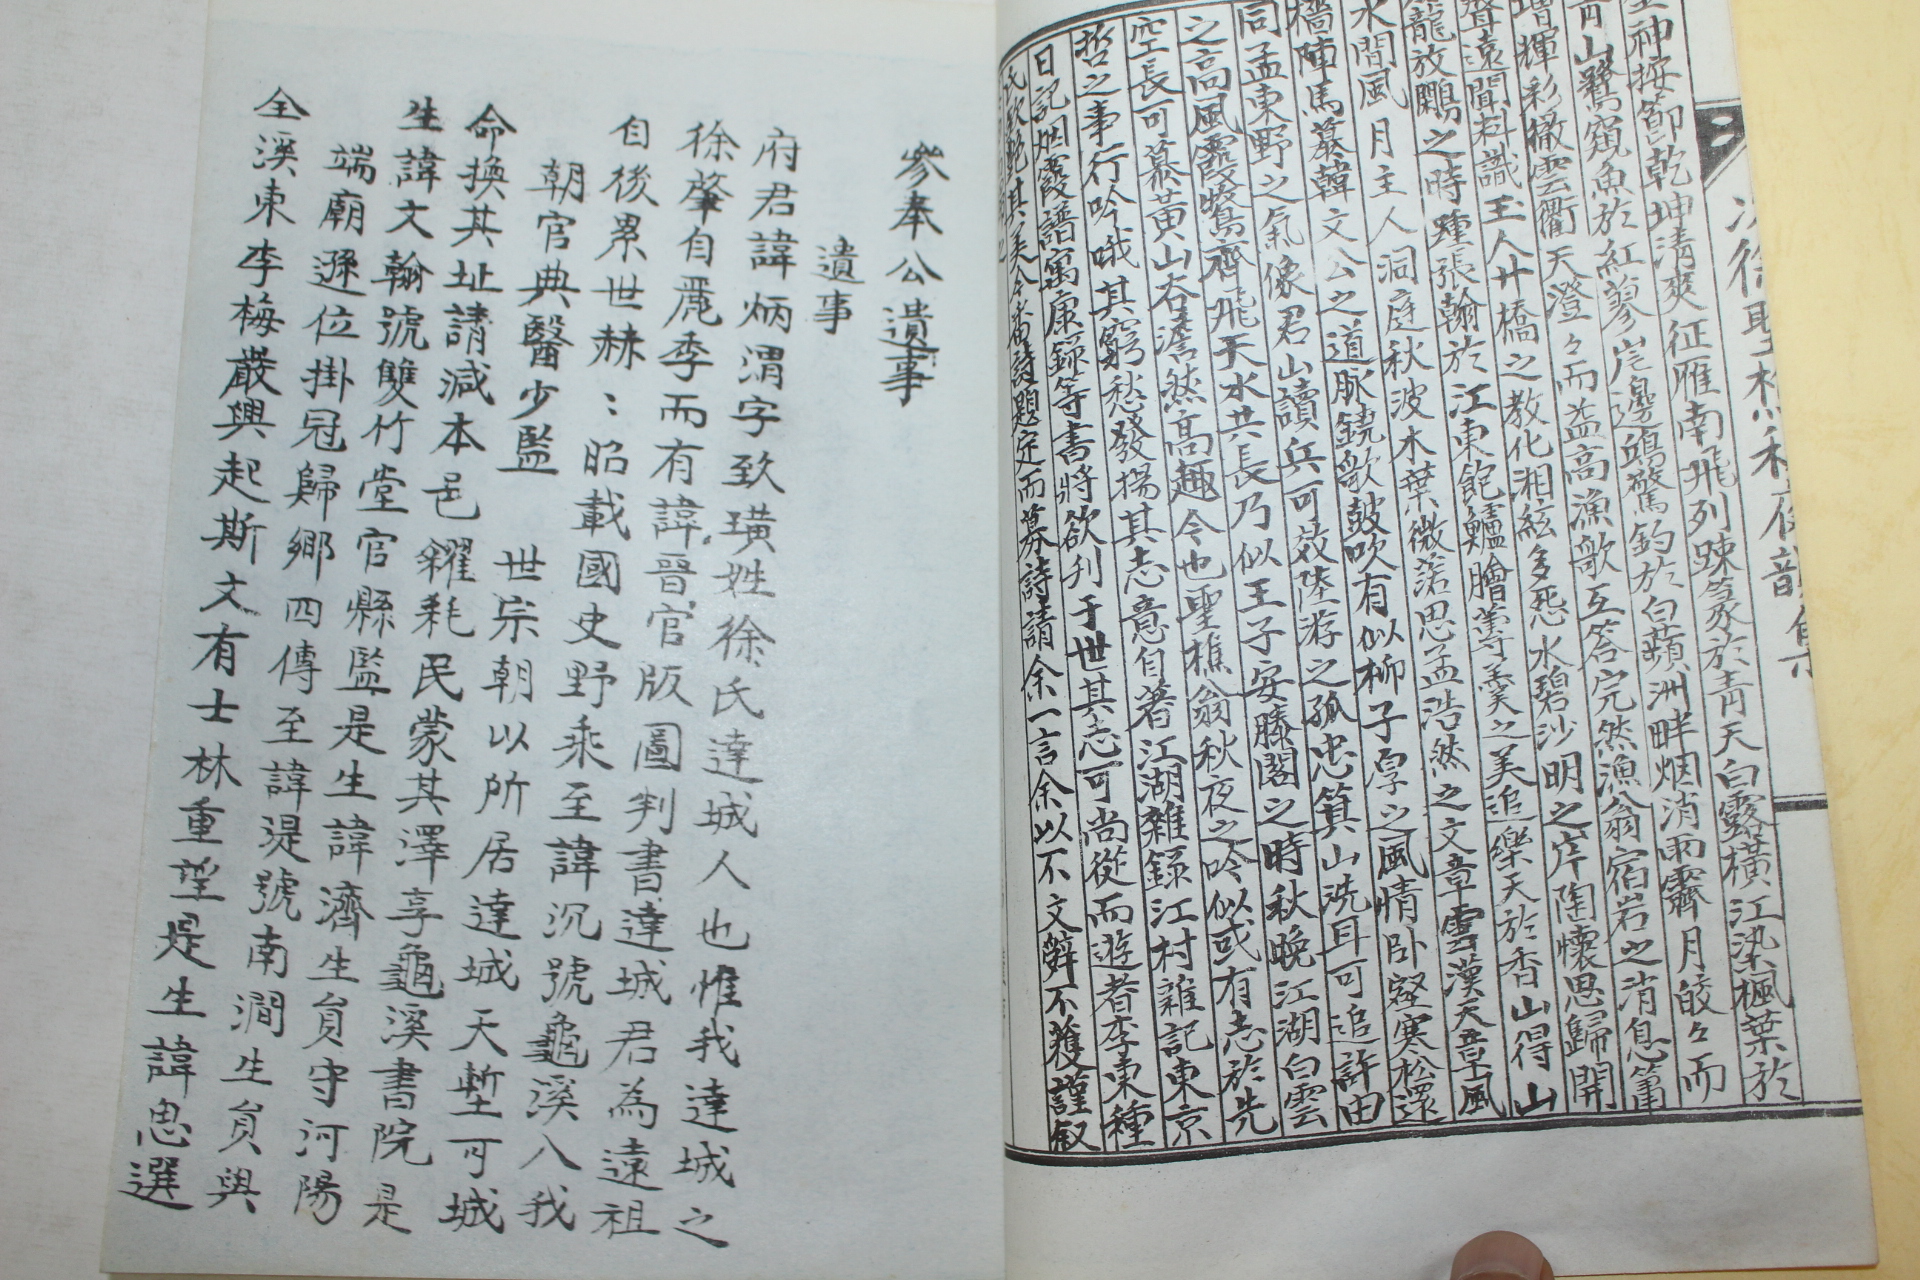 㘴神按節乾坤清爽征雁南飛列踈篆於靑天白露橫江染楓葉於
靑山鷺窺魚於紅蓼岸邊鴻驚釣於白蘋洲畔烟消雨霽月皎々而
增輝彩徹雲衢天澄々而益高漁歌互答完然漁翁宿岩之消息篴
聲遠聞料識玉人卄橋之敎化湘絃多怨水碧沙明之岸陶懷思歸開
籠放鷴之時踵張翰於江東飽鱸膾蓴羹之美追樂天於香山得山
水間風月主人洞庭秋波木葉微落思孟浩然之文章雲漢天章風
檣陣馬慕韓文公之道脉鐃歌鼓吹有似柳子厚之風情卧壑寒松還
同孟東野之氣像君山讀兵可效陸游之孤忠箕山洗耳可追許由
之高風霞鶩齊飛天水共長乃似王子安滕閣之時秋晩江湖白雲
空長可慕黃山谷澹然高趣今也聖樵翁秋夜之吟似或有志於先
哲之事行吟哦其窮愁發揚其志意自著江湖雜錄江村雜記東京
日記烟霞譜寓康錄等書將欲刋于世其志可尚從而遊者李東種
氏欽艶其美令來者詩題定而募詩請余一言余以不文辭不獲謹叙
參奉公遺事
遺事
府君諱炳渭字致璜姓徐氏達城人也惟我達城之
徐肇自麗季而有諱晉官版圖判書達城君為遠祖
自後累世赫：昭載國史野乘至諱沉號龜溪入我
朝官典醫少監
世宗朝以所居達城天塹可城
命換其址請減本邑糴耗民蒙其澤享龜溪書院是
生諱文翰號雙竹堂官縣監是生諱濟生員守河陽
端廟遜位掛冠歸鄉四傳至諱湜號南澗生員與
全溪東李梅巖興起斯文有士林重望是生諱思選